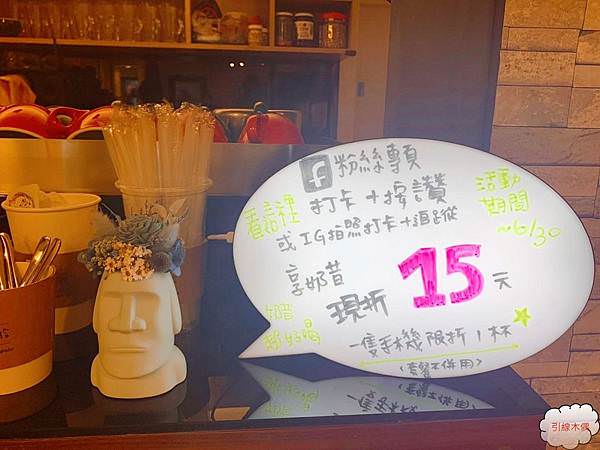 看這裡
f 粉絲專頁
打卡+按讚
或IG拍照打卡+追蹤
享奶昔
現折 15元
奶昔
超好喝
一隻手機限折1杯
(套餐不併用)
活動
期間
~6/30
引線木偶